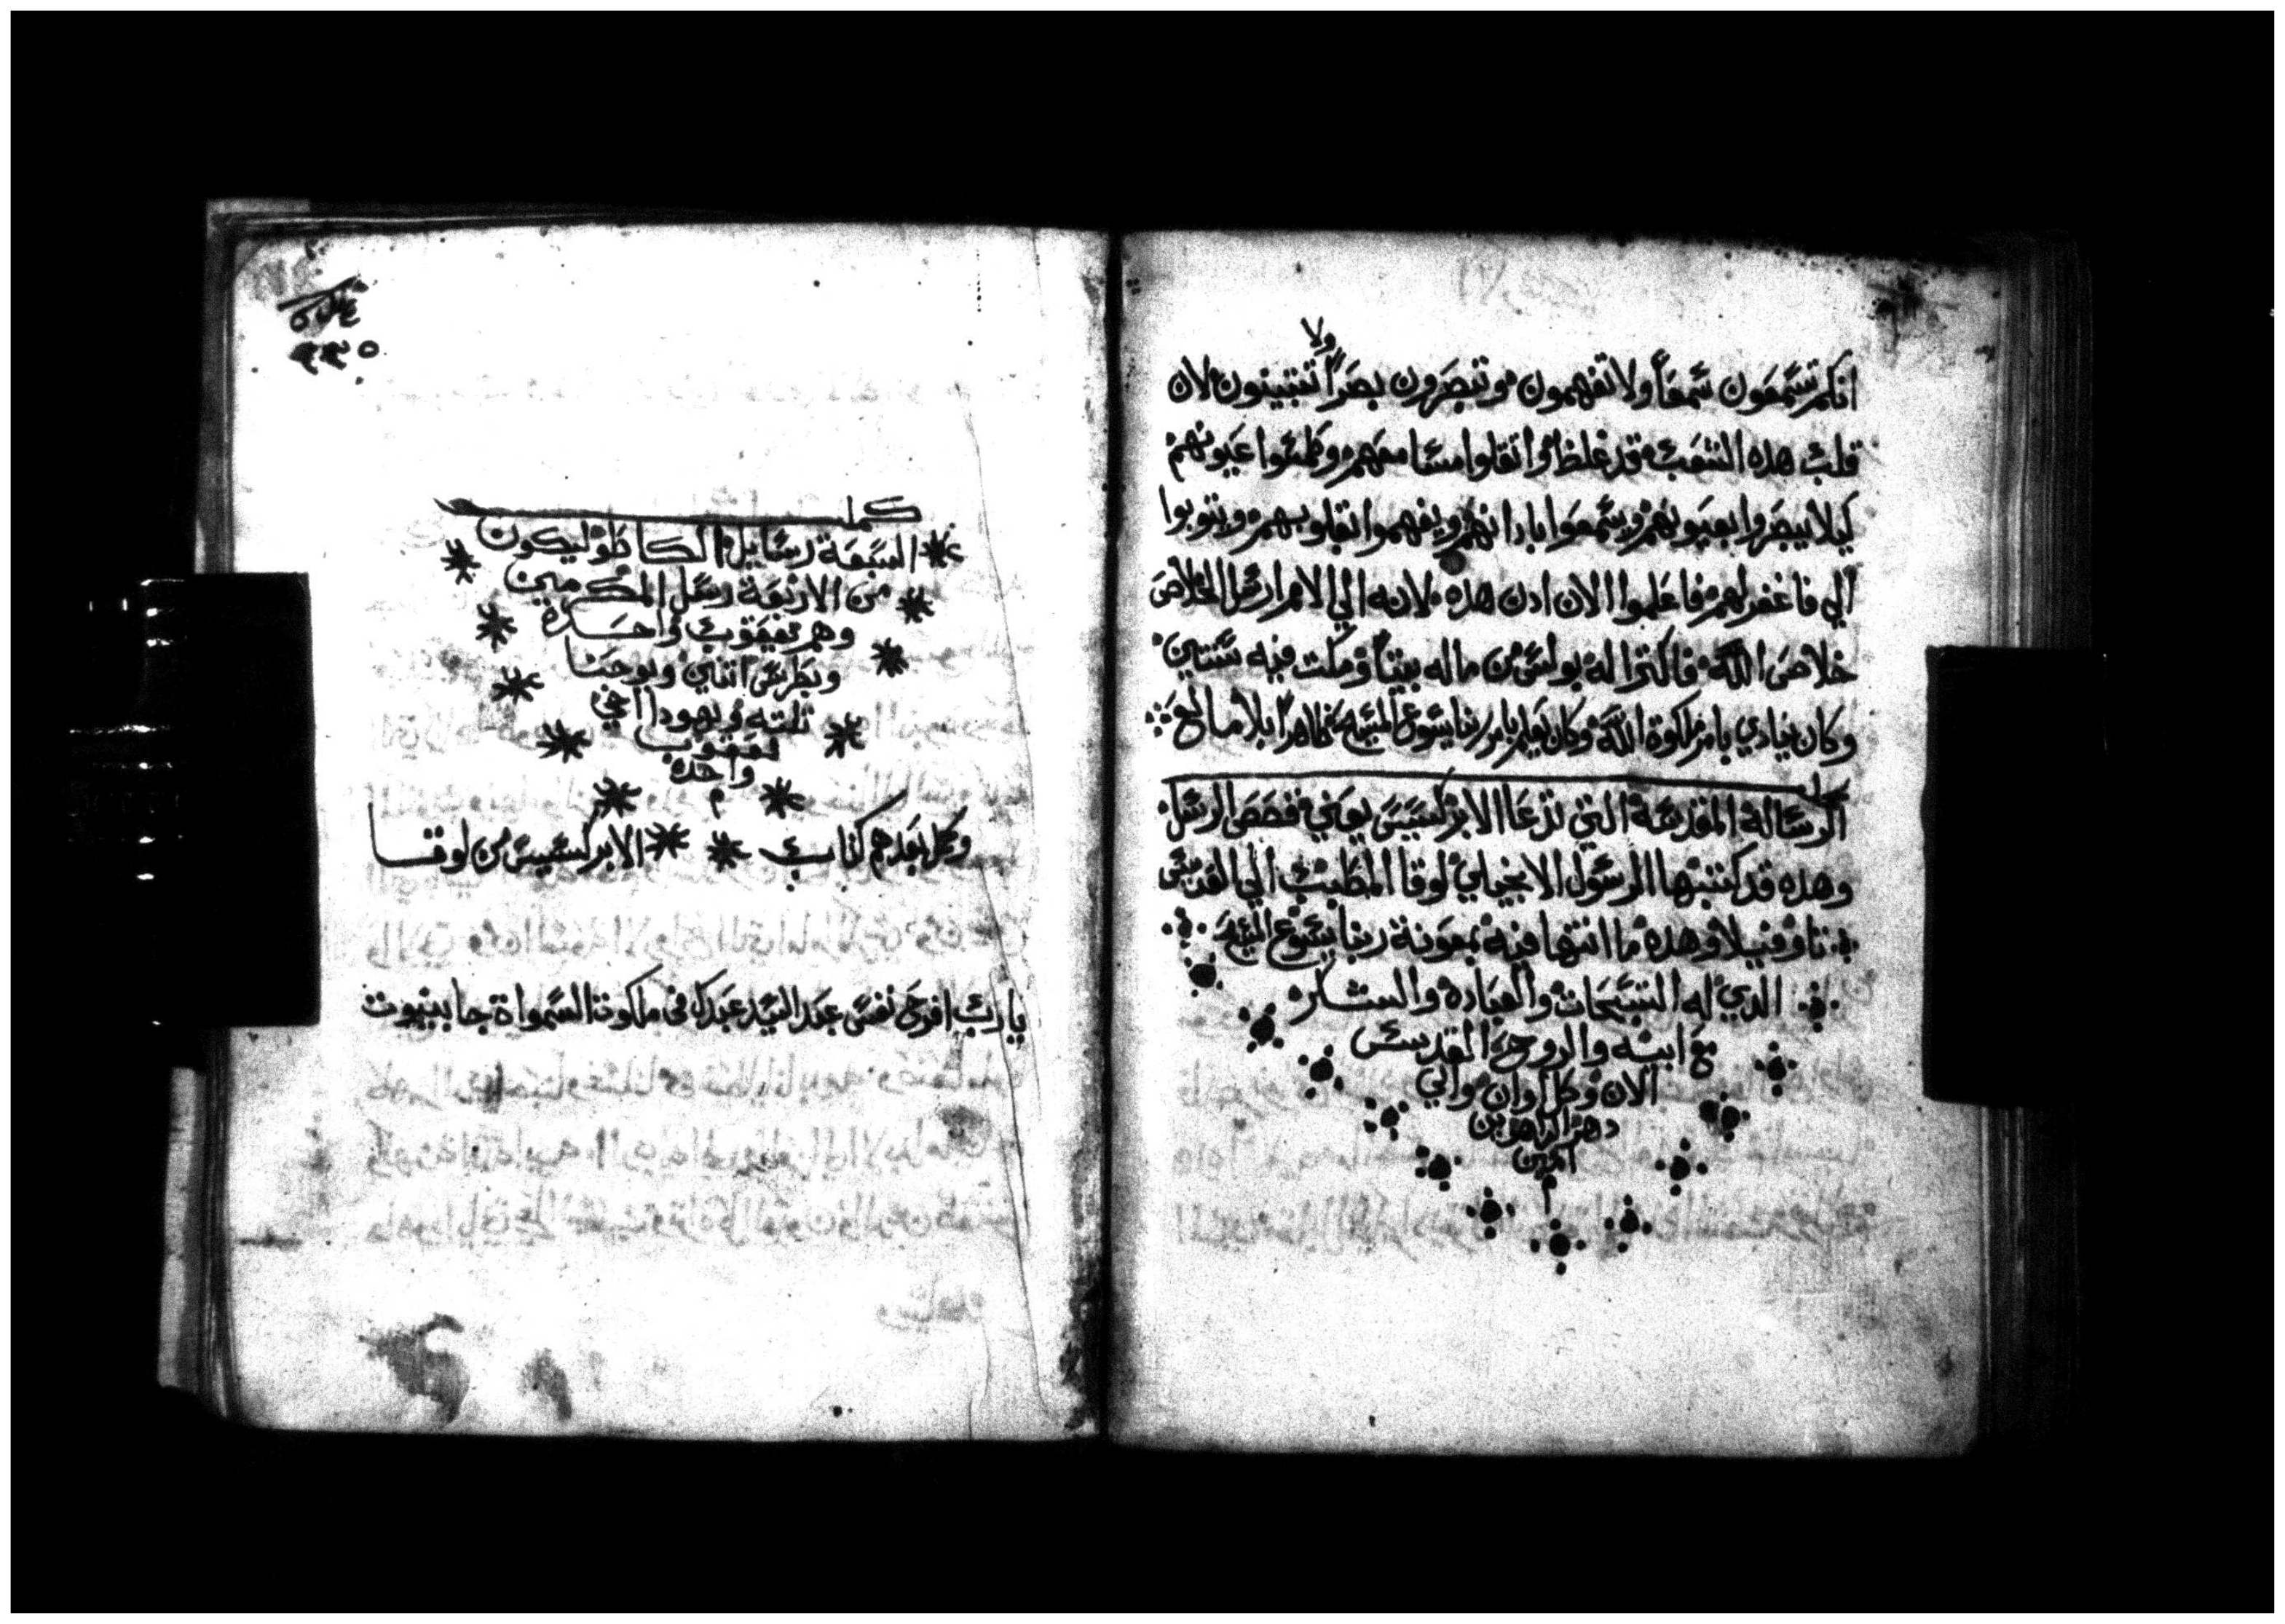 ولا
انكم تسمعون سمعاً ولا تفهمون وتبصرون بصراً تتبينون لان
قلب هذه الشعب قد غلظ واثقلوا مسامعهم وطمسوا عيونهم
كيلا يبصروا بعيونهم ويسمعوا بادانهم ويفهموا بقلوبهم ويتوبوا
الي فاغفر لهم فاعلموا الان ادن هذه لانه الي الامم ارسل الخلاص
خلاص الله فاكترا له بولس من ماله بيتاً ومكت فيه سنتين
وكان ينادي بامر ملكوة الله وكان يعلم بامر ربنا يسوع المسيح ظاهراً بلا مانع
كمل
الرسالة المقدسة التي تدعا الابركسيس يعني قصص الرسل
وهذه قد كتبها الرسول الانجيلي لوقا المطبب الي القديس
تاوفيلا وهذه ما انتها فيه بمعونة ربنا يسوع المسيح
الدي له التسبحات والعبادة والشكر
مع ابيه والروح القدس
الان وكل اوان والي
دهر الداهرين
امين
م
٢٢٥
كمل
السبعة رسايل الكاطوليكون
من الاربعة رسل المكرمين
وهم يعقوب واحدة
وبطرس اتنين ويوحنا
تلته ويهودا اخي
يعقوب
واحده
م
وكمل بعدهم كتاب الابركسيس من لوقا
يارب افرح نفس عبد السيد عبدك في ملكوت السمواة